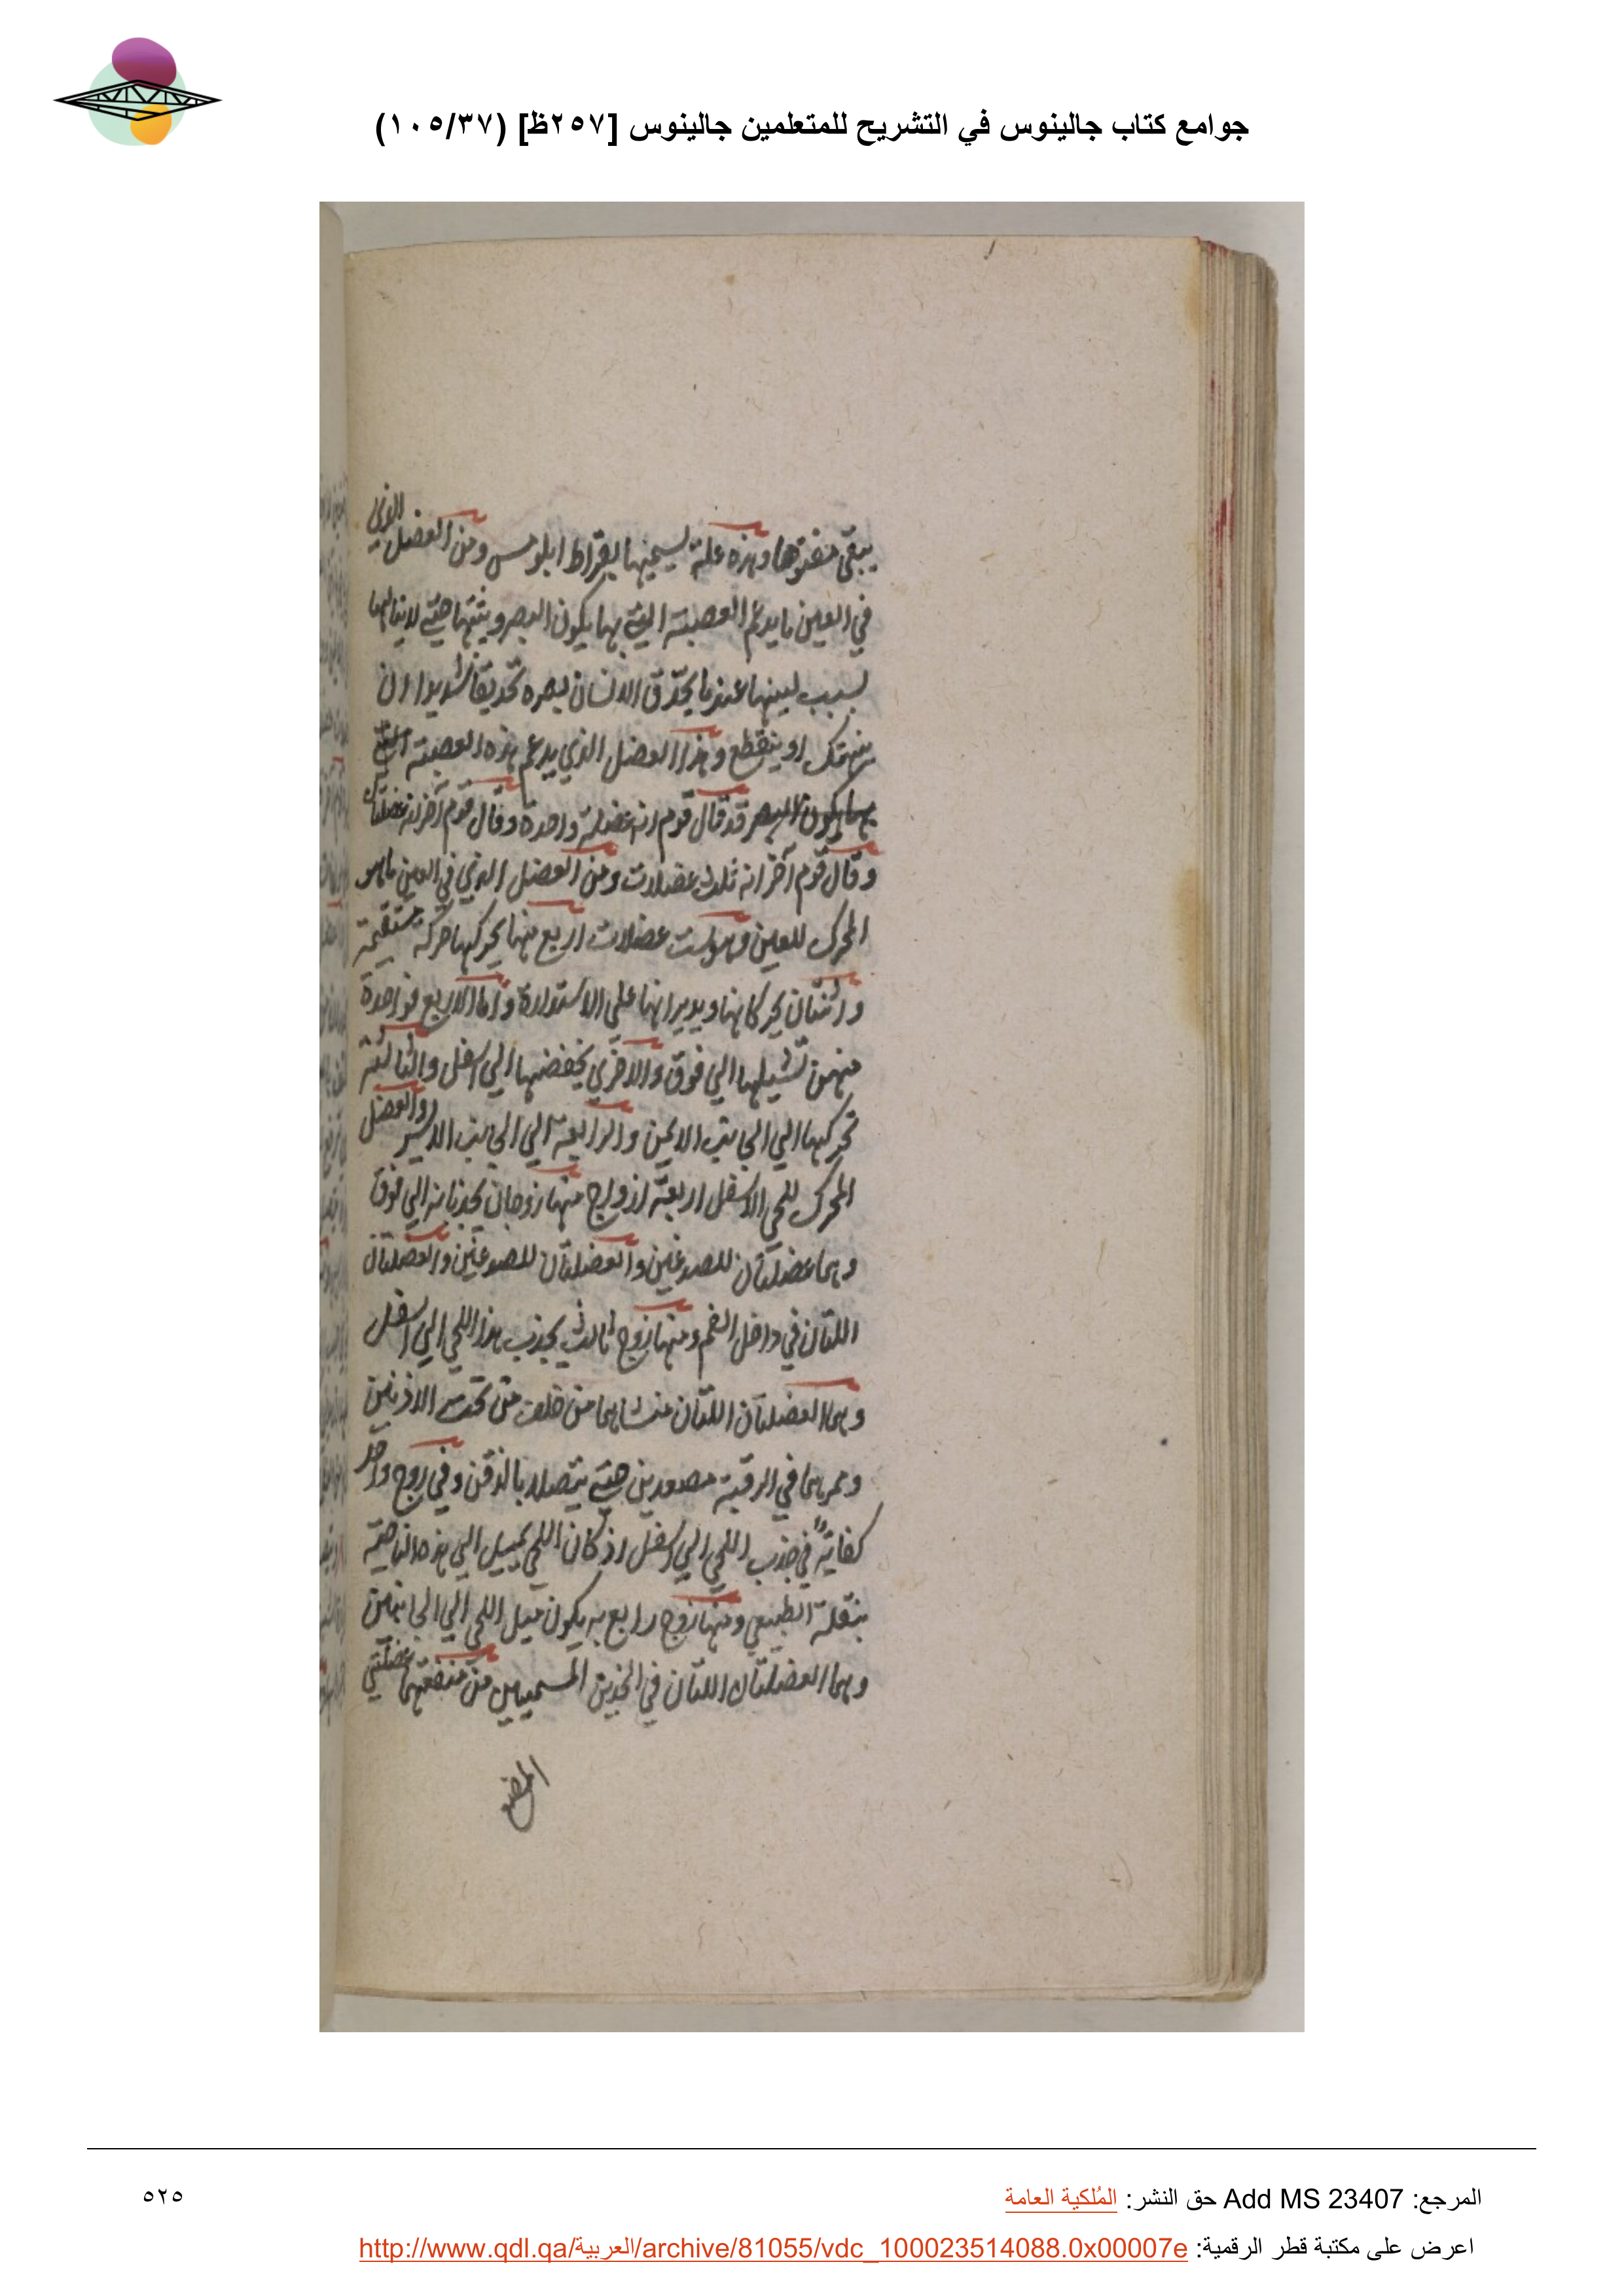 جوامع كتاب جالينوس في التشريح للمتعلمين جالينوس [٢٥٧ظ] (١٠٥/٣٧)
يبقي مفتوحا وهذه علة يسميها بقراط ومن العضل الذي
في العين ما يدعم العصبة التي بها يكون البصر ويثبتها حتي لا ينالها
لسبب لينها عندما يحدّق الانسان بصره تحديقا شديدا ان
ينهتك او ينقطع وهذا العضل الذي يدعم هذه العصبة التي
بها يكون البصر قد قال قوم انه عضلة واحدة وقال قوم آخر انه عضلتان
وقال قوم آخر انه ثلث عضلات ومن العضل الذي في العين ما هو
المحرك للعين وهو ست عضلات اربع منها يحركها حركة مستقيمة
واثنتان يحركانها ويديرانها علي الاستدارة واما الاربع فواحدة
منهن تشيلها الي فوق والاخري يخفضها الي اسفل والثالثة
تحركها الي الجانب الايمن والرابعة الي الجانب الايسر والعضل
المحرك للحي الاسفل اربعة ازواج منها زوجان يجذبانه الي فوق
وهما عضلتان للصدغين والعضلتان للصدغين والعضلتان
اللتان في داخل الفم ومنها زوج ثالث يجذب هذا اللحي الي اسفل
وهما العضلتان اللتان منشاهما من خلف من تحت الاذنين
وممرهما في الرقبة مصعدين حتي يتصلا بالذقن وفي زوج واحد
كفاية في جذب اللحي الي اسفل اذ كان اللحي يميل الي هذه الناحية
بثقله الطبيعي ومنها زوج رابع به يكون ميل اللحي الي الجانبين
وهما العضلتان اللتان في الخدين المسميين من منفعتهما عضلتي
المضغ
المرجع: Add MS 23407 حق النشر: المُلكية العامة
٥٢٥
اعرض على مكتبة قطر الرقمية: http://www.qdl.qa/العربية/archive/81055/vdc_100023514088.0x00007e